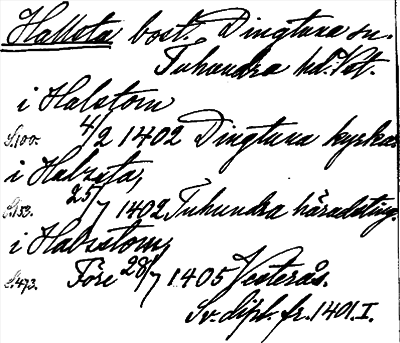 Hallsta bost. Dingtuna sn.
Tuhundra hd. Vst.
i Halstom
S.100. 4/2 1402 Dingtuna kyrka
i Halzsta,
S.153. 25/7 1402 Tuhundra häradsting.
i Halzstom,
S.473. Före 28/7 1405 Vesterås.
Sv. dipl. fr. 1401. I.